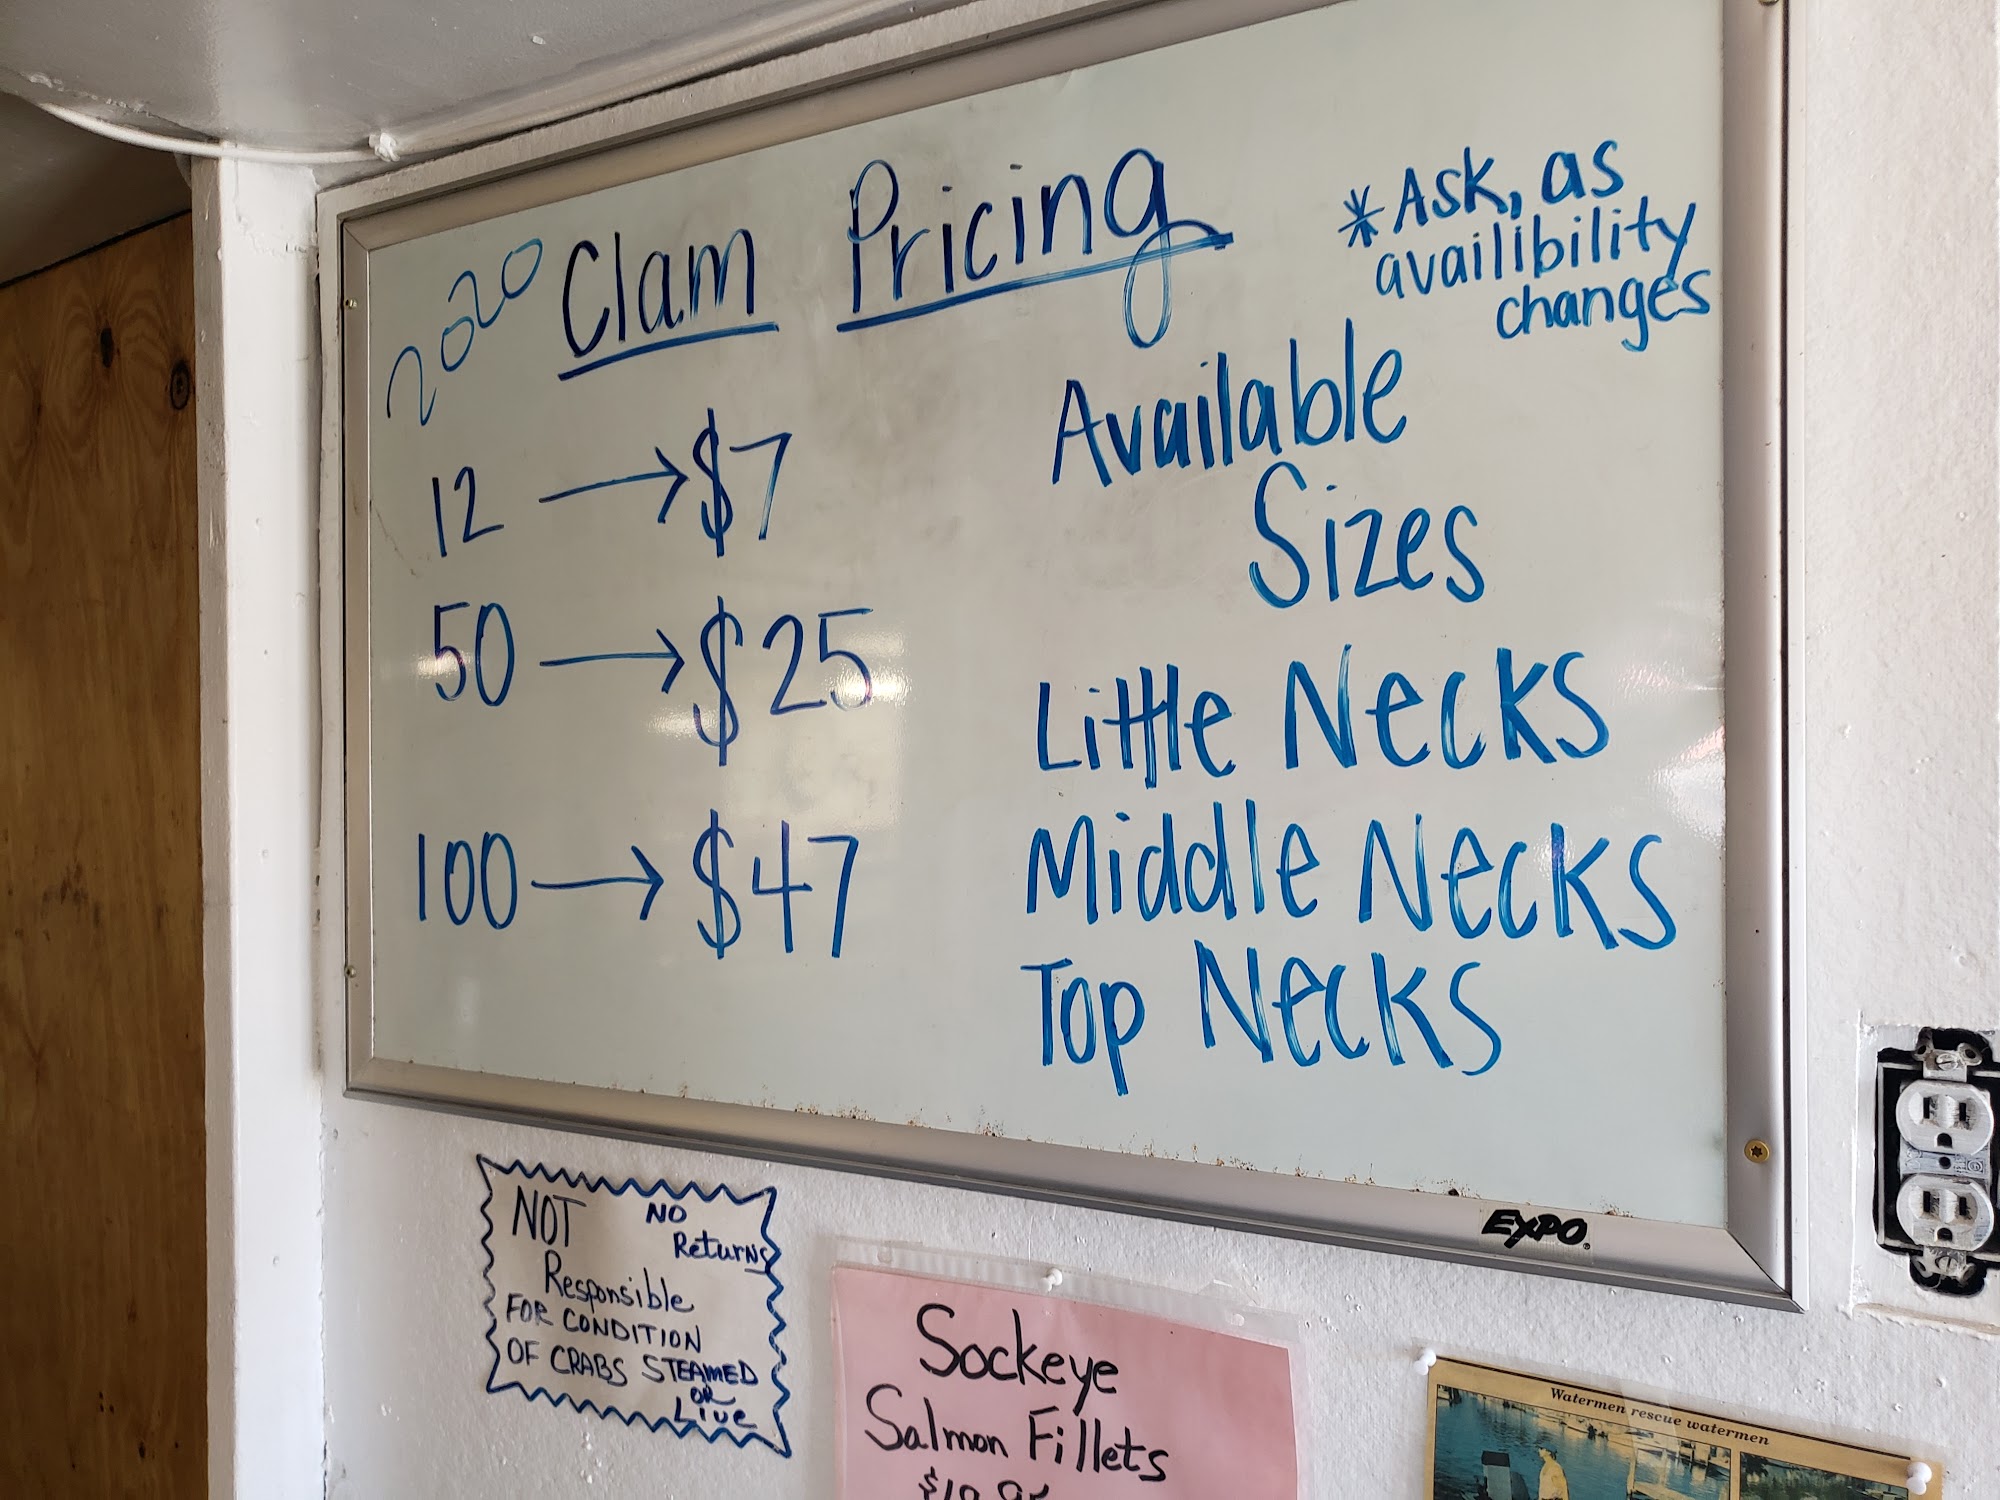 2020 Clam Pricing
*Ask, as
availibility
changes
12 → $7
50 → $25
100 → $47
Available
Sizes
Little Necks
Middle Necks
Top Necks
EXPO
NOT
NO
Returns
Responsible
FOR CONDITION
OF CRABS STEAMED
OR
Live
Sockeye
Salmon Fillets
Watermen rescue watermen